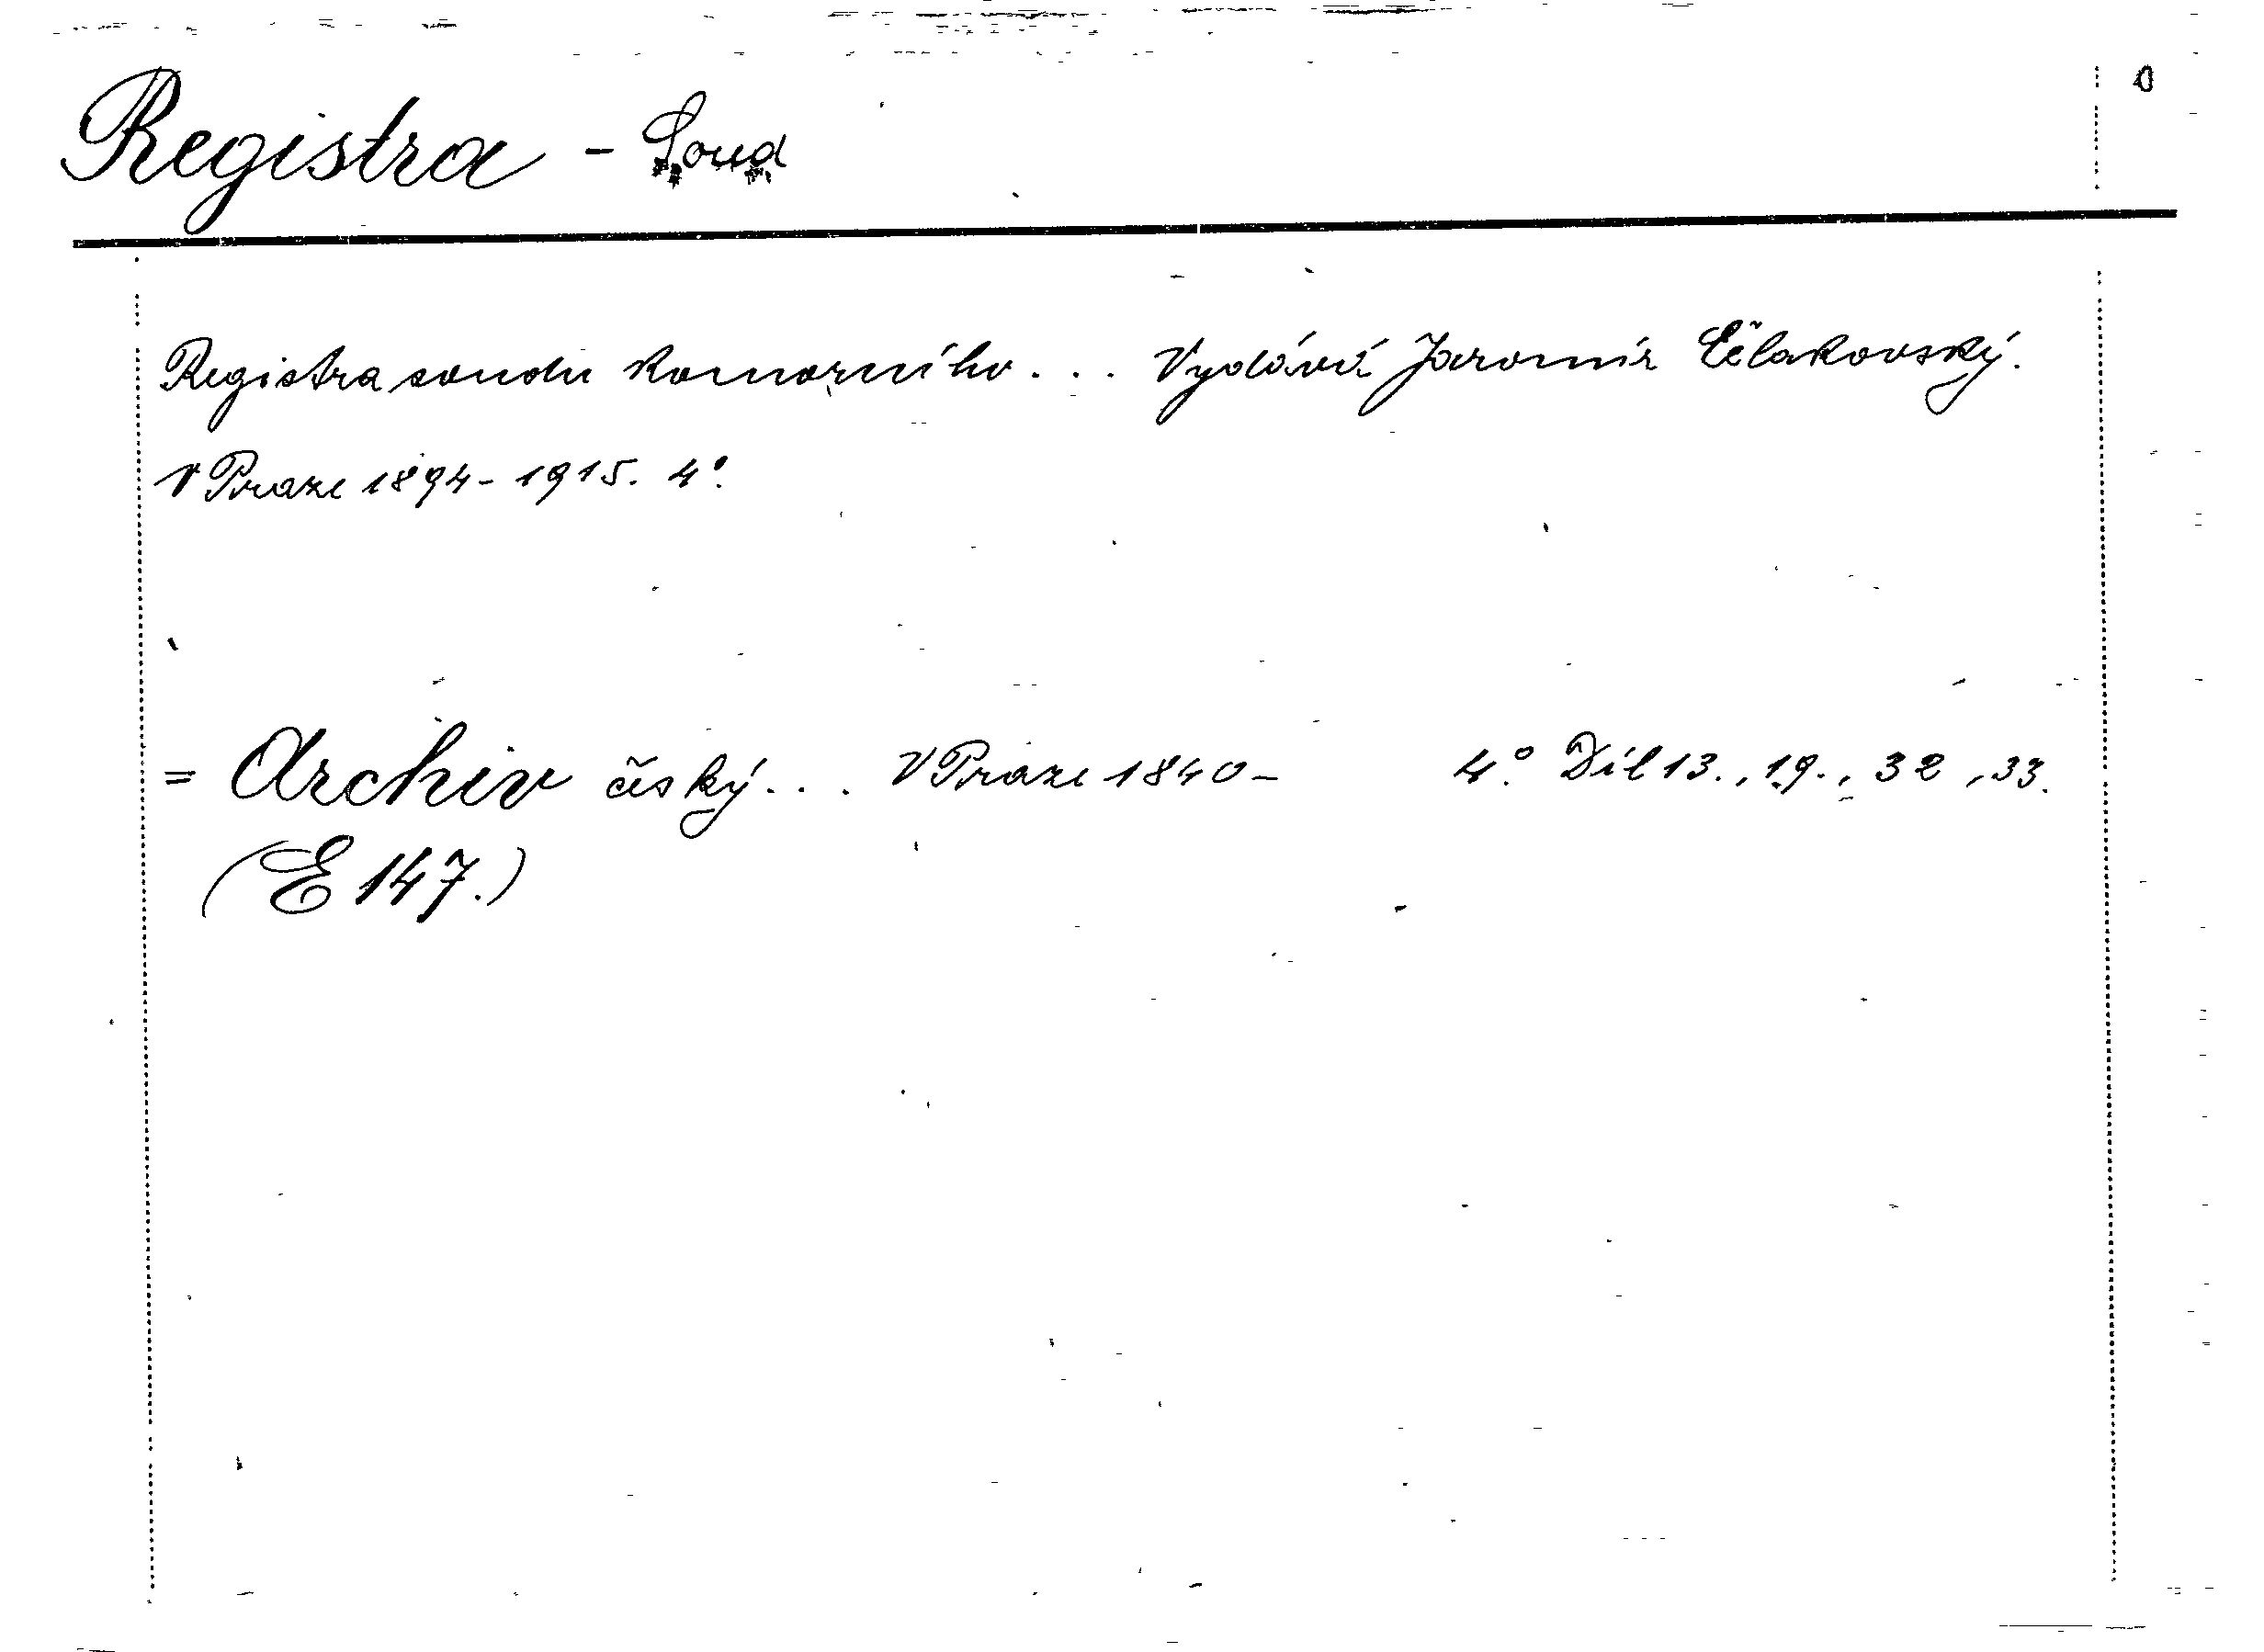 Registra - Soud
Registra soudu komorního... Vydává Jaromír Čelakovský.
V Praze 1894-1915. 4°.
= Archiv český... V Praze 1840- 4°. Díl 13., 19., 32, 33.
(E 147.)